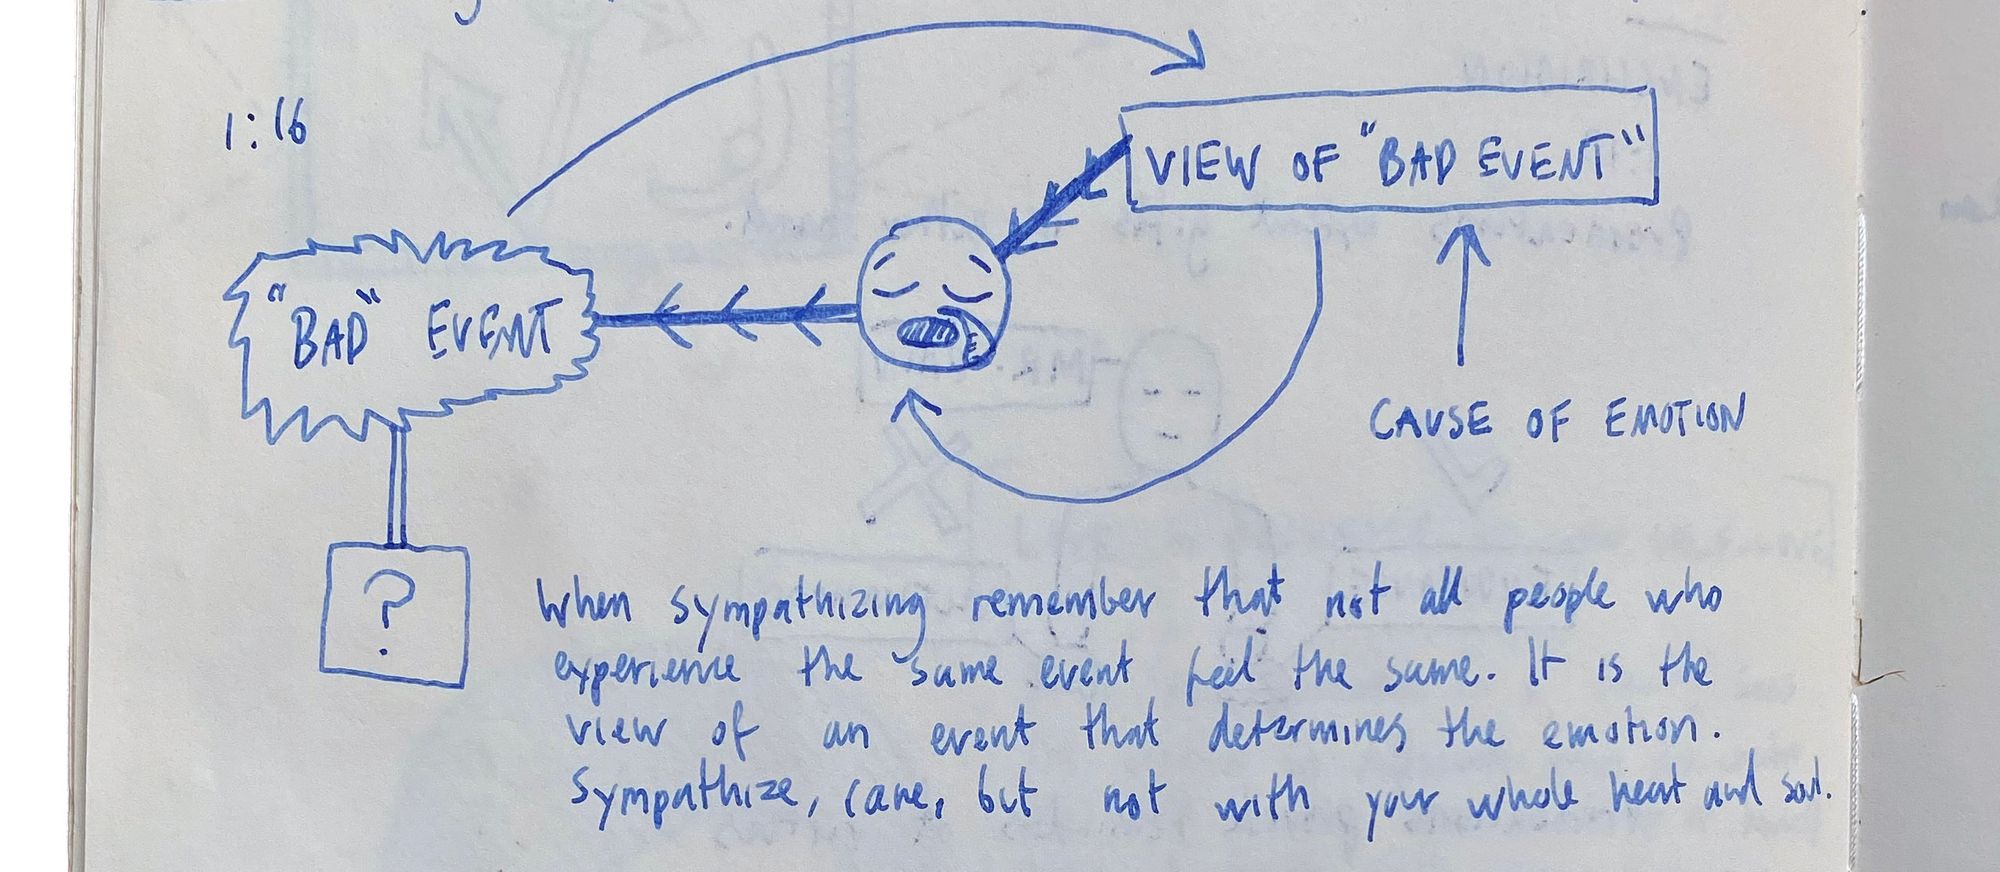 1:16
VIEW OF "BAD EVENT"
"BAD" EVENT
CAUSE OF EMOTION
?
When sympathizing remember that not all people who
experience the same event feel the same. It is the
view of an event that determines the emotion.
Sympathize, care, but not with your whole heart and soul.